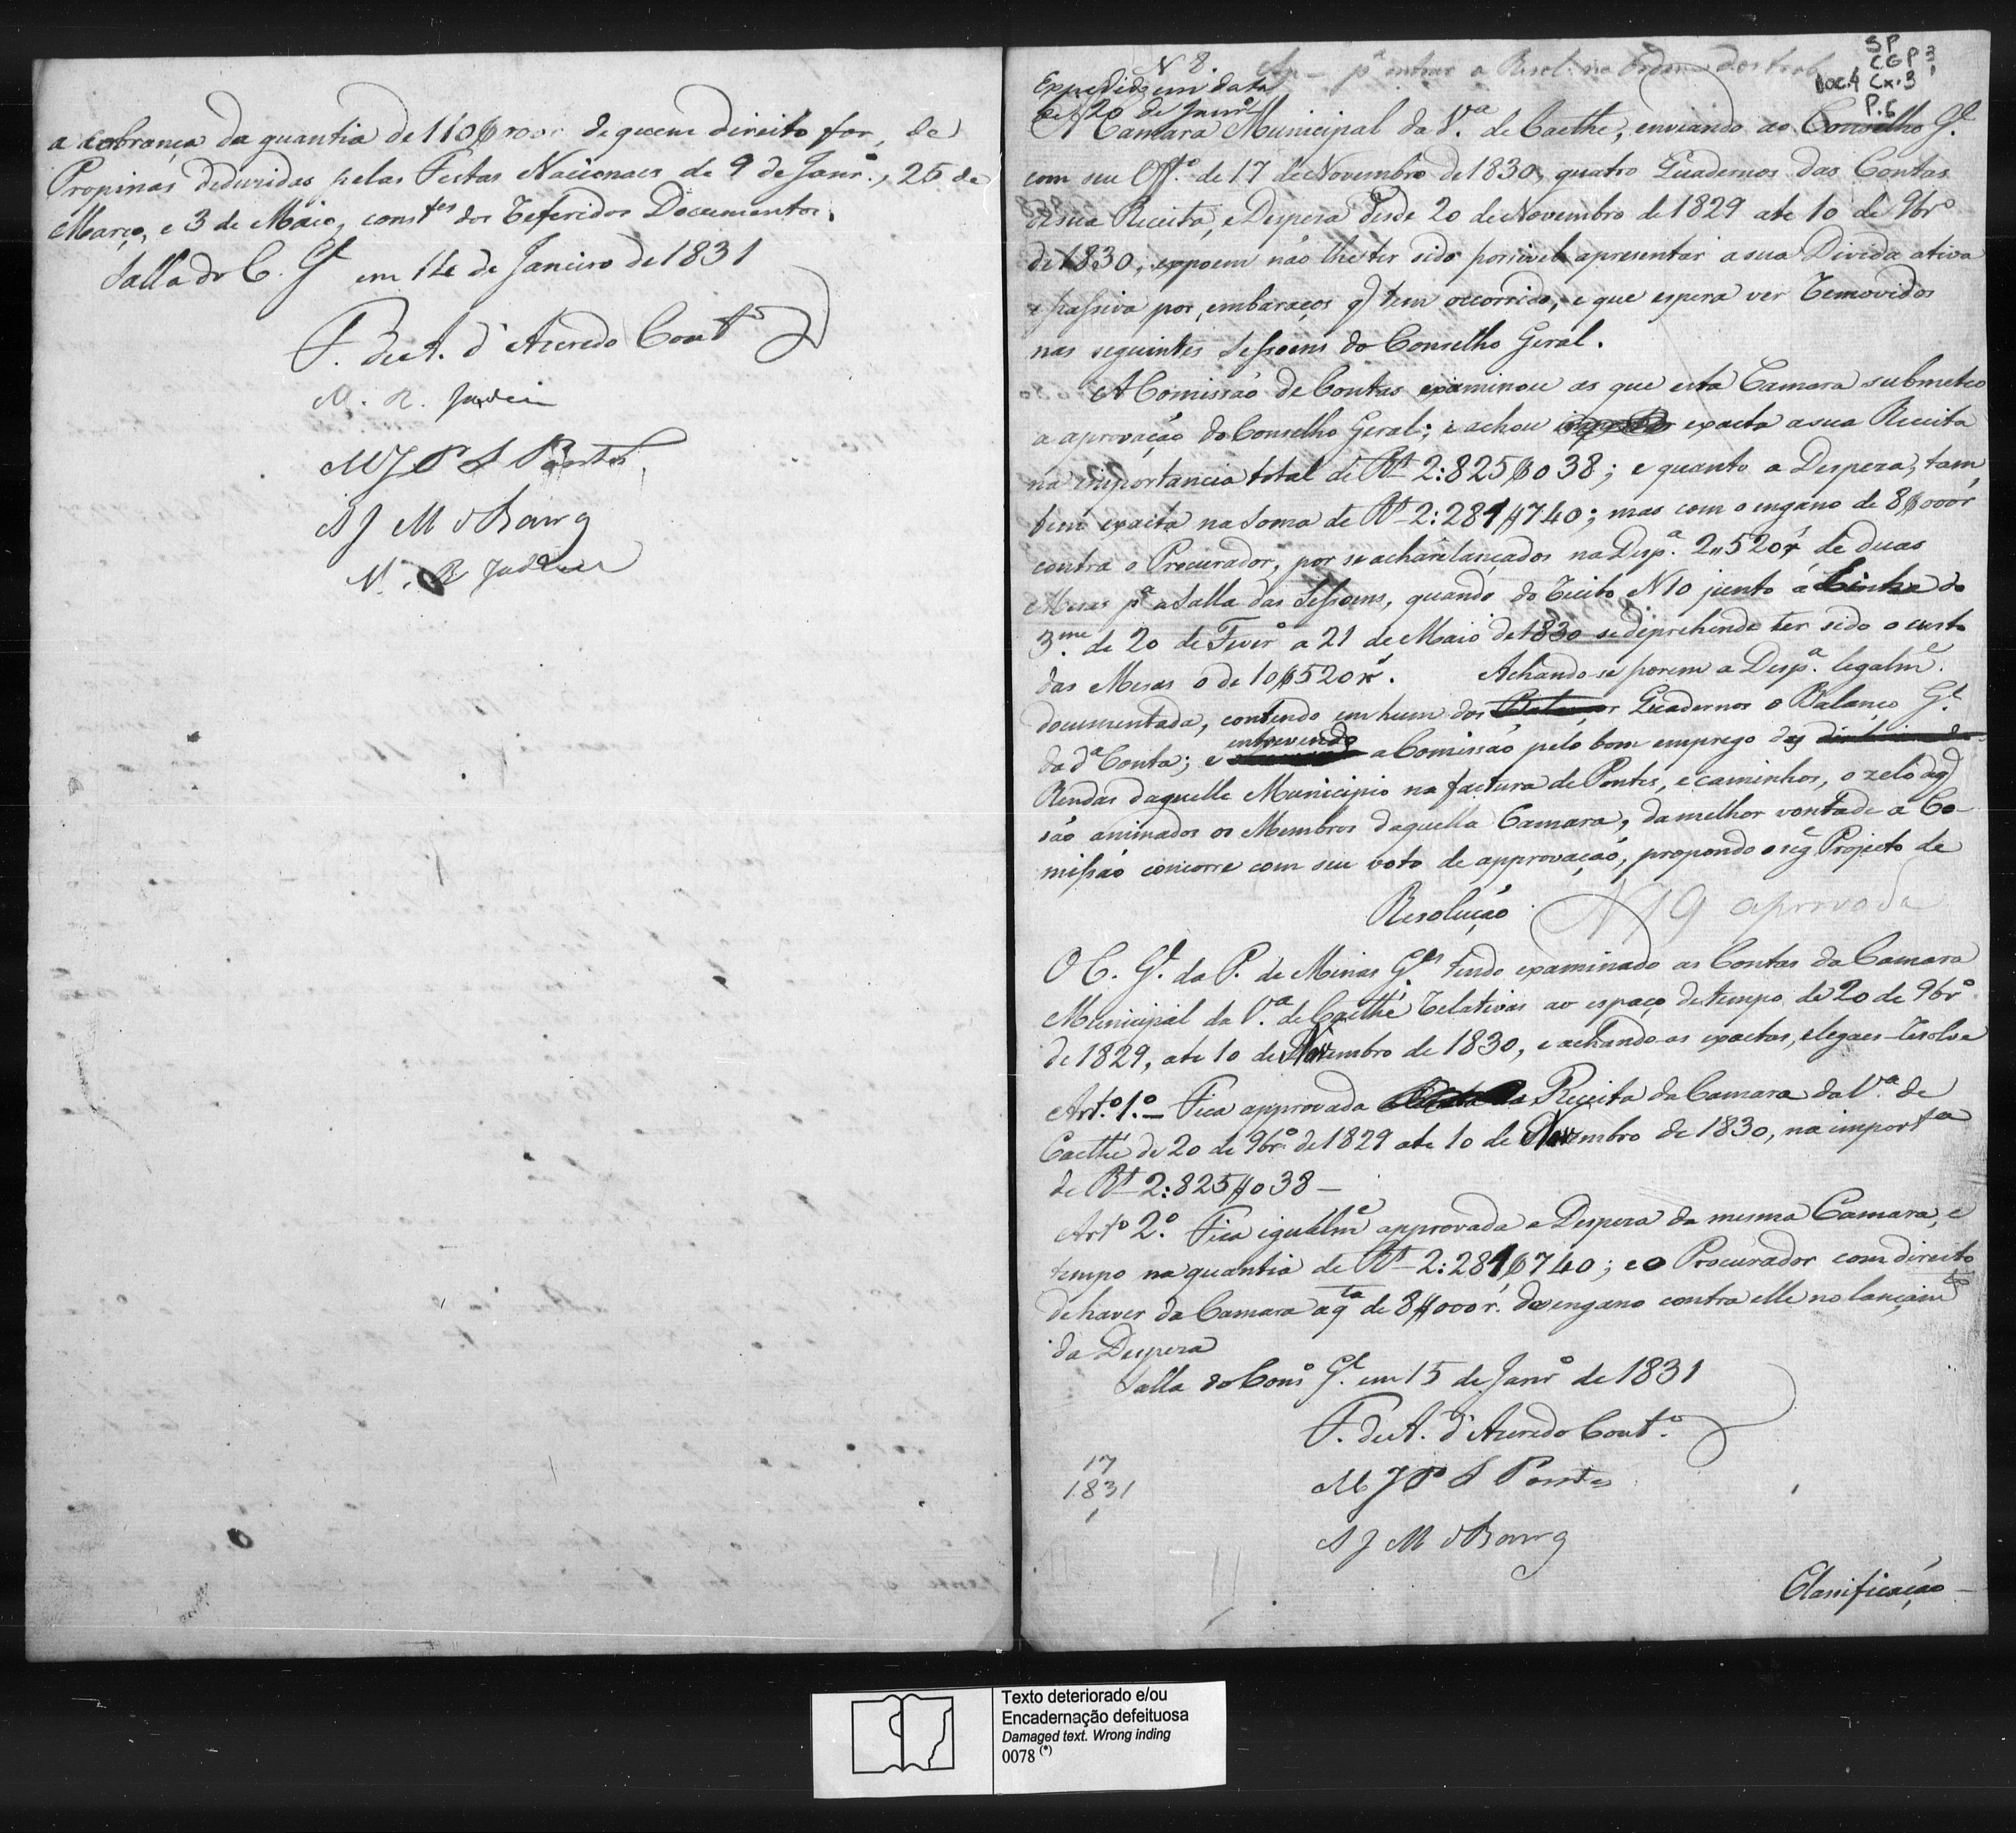 a cobrança da quantia de 110$000 r. de quem direito for, de
Propinas deduzidas pelas Festas Nacionaes de 9 de Janr.º, 25 de
Março, e 3 de Maio, constes dos referidos Documentos.
Salla do C. Gl em 14 de Janeiro de 1831
F. de A. d'Azeredo Coutº
M. R. Jardim
M J P S Pontes
A J M d Bawg
M. R. Jardim
SP
CGP 3
Doc.4 Cx.3
P.6
N 8. Ap – pª entrar a Resol. na Ordem dos trab.
Expedida em data
de 20 de Janrº
A Camara Municipal da Vª de Caethe, enviando ao Conselho Gl
com seu Offº de 17 de Novembro de 1830, quatro Quadernos das Contas
de sua Receita, e Despeza desde 20 de Novembro de 1829 ate 10 de 9brº
de 1830, expoem não lhes ter sido possivel apresentar a sua Divida ativa
e passiva por embaraços q̃ tem occorrido, e que espera ver removidos
nas seguintes Sessoens do Conselho Geral.
A Comissão de Contas examinou as que esta Camara submeteo
a aprovação do Conselho Geral; e achou exacta a sua Receita
na importancia total de Rs 2:825$038; e quanto a Despeza, tam
bem exacta na Soma de Rs 2:281$740; mas com o engano de 8$000 r
contra o Procurador, por se acharem lançados na Despª. 2"520 r de duas
Mesas pª a Salla das Sessoens, quando do recibo N 10 junto á do
3.me de 20 de Fevrº a 21 de Maio de 1830 se deprehende ter sido o custo
das Mesas o de 10$520 r. Achando-se porem a Despª. legalme.
documentada, contendo em hum dos Quadernos o Balanço Gl.
da dª Conta; e entrevendo a Comissão pelo bom emprego das
Rendas daquelle Municipio na factura de Pontes, e caminhos, o zelo de q̃
são animados os Membros daquella Camara, da melhor vontade a Co-
missão concorre com seu voto de approvação, propondo o sege Projecto de
Resolução N 19 aprovada
O C. Gl. da P. de Minas Ges tendo examinado as Contas da Camara
Municipal da Vª. de Caethé relativas ao espaço de tempo de 20 de 9brº
de 1829, ate 10 de Novembro de 1830, e achando-as exactas, e legaes – resolve
Artº 1.º – Fica approvada a Receita da Camara da Vª. de
Caethé de 20 de 9brº de 1829 ate 10 de Novembro de 1830, na importca
de Rs 2:825$038 –
Artº 2º. Fica igualme approvada a Despeza da mesma Camara, e
tempo na quantia de Rs 2:281$740; e o Procurador com direito
de haver da Camara a qta de 8$000 r. do engano contra elle no lançamto
da Despeza
Salla do Consº Gl. em 15 de Janrº de 1831
F. de A. d'Azeredo Coutº.
M J P S Pontes
A J M d Bawg
17
1831
1
Classificação –
Texto deteriorado e/ou
Encadernação defeituosa
Damaged text. Wrong inding
0078 (*)